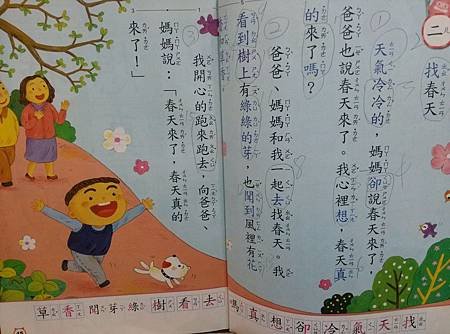 二
找春天
①天氣冷冷的，媽媽卻說春天來了，
爸爸也說春天來了。我心裡想，春天真
的來了嗎？
②爸爸、媽媽和我一起去找春天。我
看到樹上有綠綠的芽，也聞到風裡有花
③我開心的跑來跑去，向爸爸、
媽媽說：「春天來了，春天真的
來了！」
找天氣冷卻想真嗎
去看樹綠芽聞香草